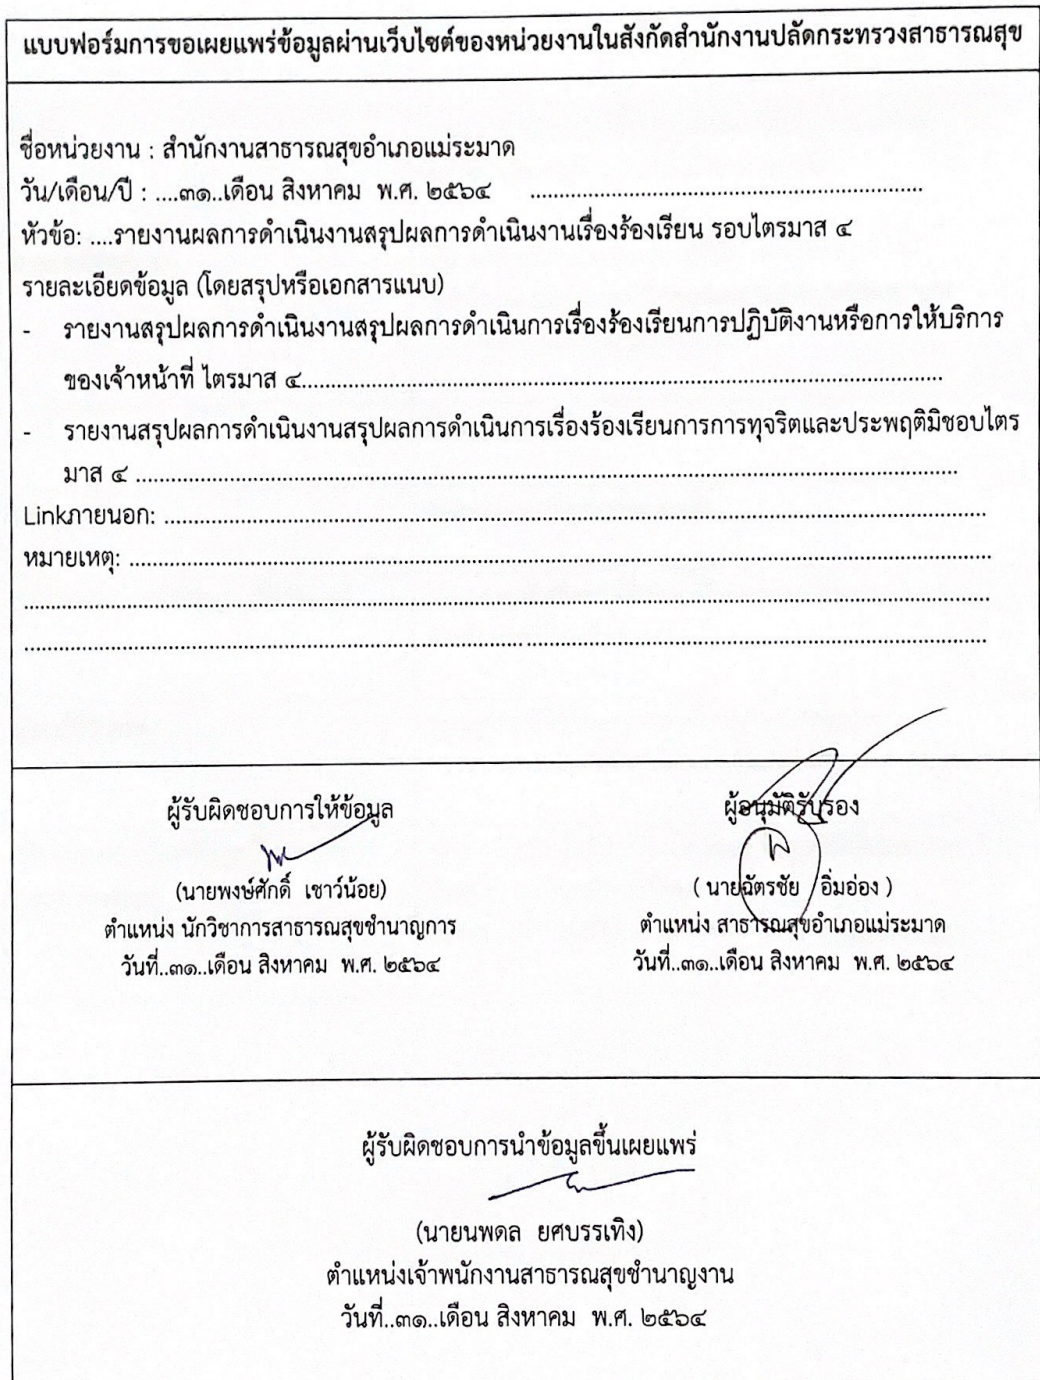 แบบฟอร์มการขอเผยแพร่ข้อมูลผ่านเว็บไซต์ของหน่วยงานในสังกัดสำนักงานปลัดกระทรวงสาธารณสุข
ชื่อหน่วยงาน : สำนักงานสาธารณสุขอำเภอแม่ระมาด
วัน/เดือน/ปี : ....๓๑..เดือน สิงหาคม พ.ศ. ๒๕๖๔ ..................................................................
หัวข้อ: ....รายงานผลการดำเนินงานสรุปผลการดำเนินงานเรื่องร้องเรียน รอบไตรมาส ๔
รายละเอียดข้อมูล (โดยสรุปหรือเอกสารแนบ)
- รายงานสรุปผลการดำเนินงานสรุปผลการดำเนินการเรื่องร้องเรียนการปฏิบัติงานหรือการให้บริการ
ของเจ้าหน้าที่ ไตรมาส ๔..................................................................
- รายงานสรุปผลการดำเนินงานสรุปผลการดำเนินการเรื่องร้องเรียนการการทุจริตและประพฤติมิชอบไตร
มาส ๔ ..................................................................
Linkภายนอก: ..................................................................
หมายเหตุ: ..................................................................
..................................................................
..................................................................
ผู้รับผิดชอบการให้ข้อมูล
(นายพงษ์ศักดิ์ เชาว์น้อย)
ตำแหน่ง นักวิชาการสาธารณสุขชำนาญการ
วันที่..๓๑..เดือน สิงหาคม พ.ศ. ๒๕๖๔
ผู้อนุมัติรับรอง
( นายฉัตรชัย อิ่มอ่อง )
ตำแหน่ง สาธารณสุขอำเภอแม่ระมาด
วันที่..๓๑..เดือน สิงหาคม พ.ศ. ๒๕๖๔
ผู้รับผิดชอบการนำข้อมูลขึ้นเผยแพร่
(นายนพดล ยศบรรเทิง)
ตำแหน่งเจ้าพนักงานสาธารณสุขชำนาญงาน
วันที่..๓๑..เดือน สิงหาคม พ.ศ. ๒๕๖๔